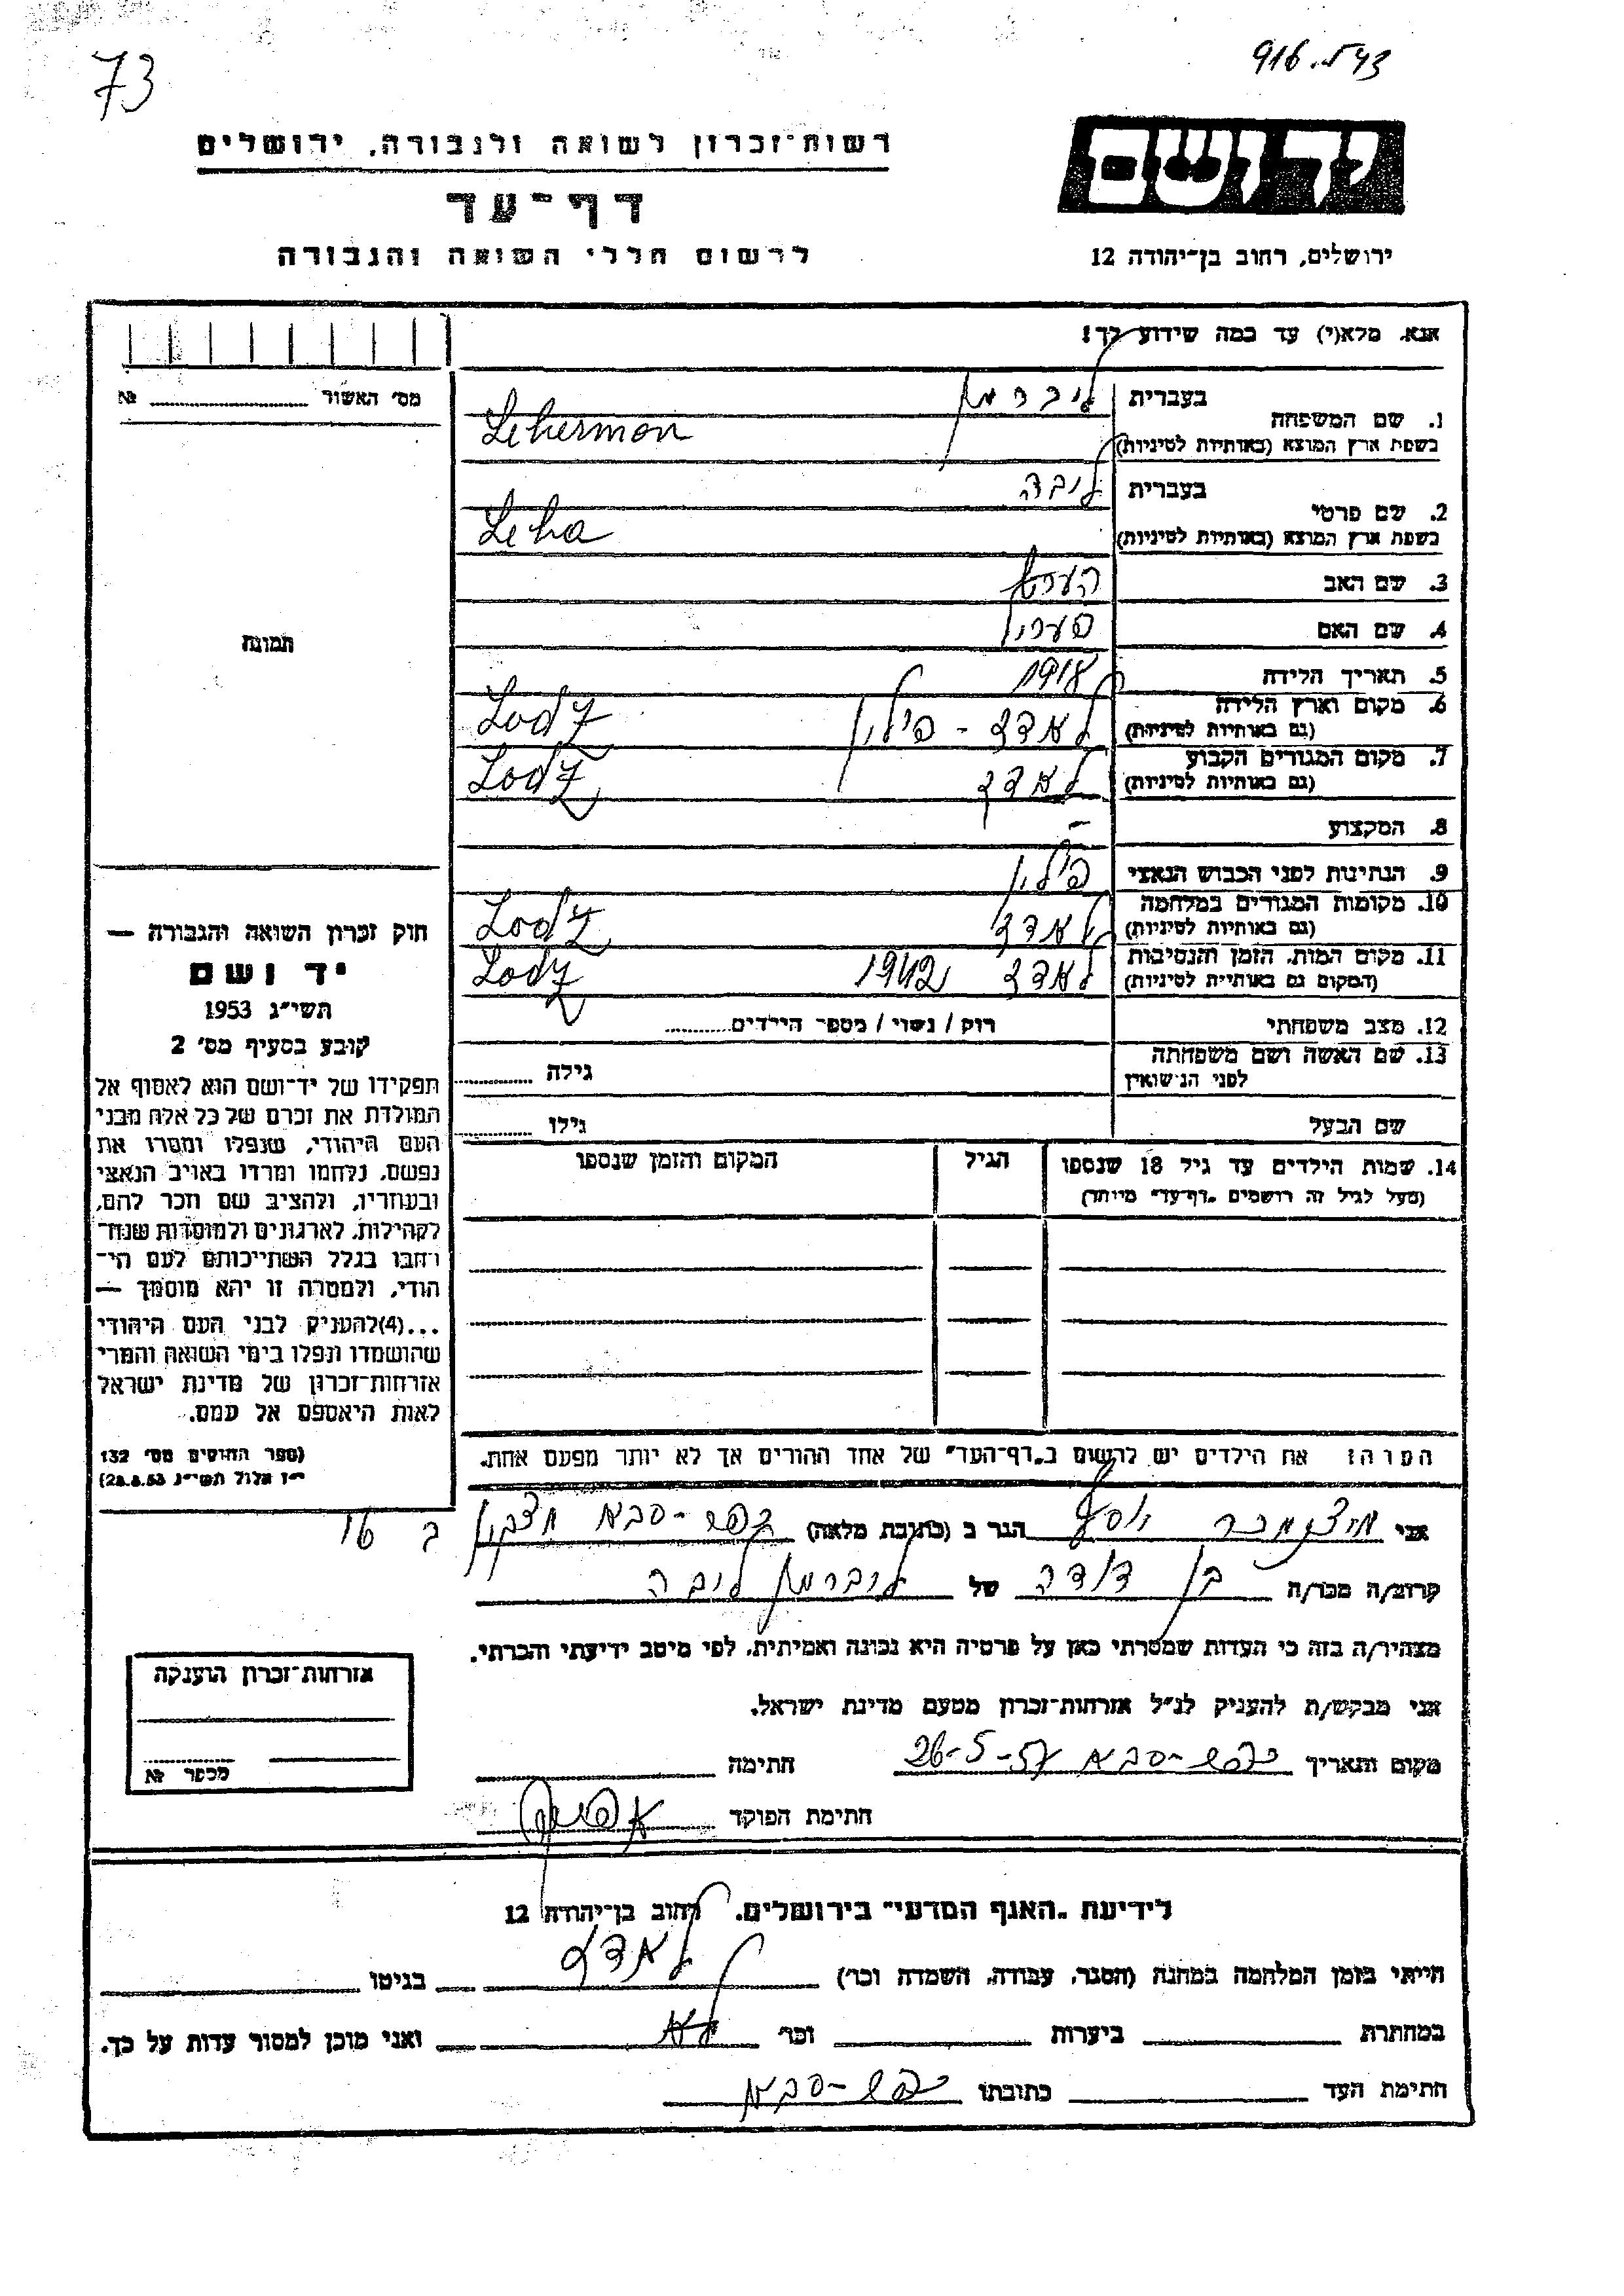 73
916 . 543
רשות־זכרון לשואה ולגבורה, ירושלים
יד ושם
דף־עד
לרשום חללי השואה והגבורה
ירושלים, רחוב בן־יהודה 12
אנא, מלא(י) עד כמה שידוע לך!
מס׳ האשור № 
1. שם המשפחה
בעברית ליברמן
בשפת ארץ המוצא (באותיות לטיניות) Leherman
2. שם פרטי
בעברית ליבה
בשפת ארץ המוצא (באותיות לטיניות) Leha
3. שם האב
4. שם האם
5. תאריך הלידה 1918
6. מקום וארץ הלידה (גם באותיות לטיניות) לאדז - פילין Lodz
7. מקום המגורים הקבוע (גם באותיות לטיניות) לאדז Lodz
8. המקצוע -
9. הנתינות לפני הכבוש הנאצי פילין
10. מקומות המגורים במלחמה (גם באותיות לטיניות) לאדז Lodz
11. מקום המות, הזמן והנסיבות (המקום גם באותיות לטיניות) לאדז 1942 Lodz
12. מצב משפחתי רווק / נשוי / מספר הילדים
13. שם האשה ושם משפחתה לפני הנישואין גילה
שם הבעל גילו
14. שמות הילדים עד גיל 18 שנספו
(מעל לגיל זה רושמים „דף־עד״ מיוחד)
הגיל
המקום והזמן שנספו
תמונה
חוק זכרון השואה והגבורה —
יד ושם
תשי״ג 1953
קובע בסעיף מס׳ 2
תפקידו של יד־ושם הוא לאסוף אל
המולדת את זכרם של כל אלה מבני
העם היהודי, שנפלו ומסרו את
נפשם, נלחמו ומרדו באויב הנאצי
ובעוזריו, ולהציב שם וזכר להם,
לקהילות, לארגונים ולמוסדות שנח־
רבו בגלל השתייכותם לעם הי־
הודי, ולמטרה זו יהא מוסמך —
...(4)להעניק לבני העם היהודי
שהושמדו ונפלו בימי השואה והמרי
אזרחות־זכרון של מדינת ישראל
לאות היאספם אל עמם.
(ספר החוקים מס׳ 132
י״ז אלול תשי״ג 28.8.53)
הערה: את הילדים יש לרשום ב„דף־העד״ של אחד ההורים אך לא יותר מפעם אחת.
אני יוסף הגר ב (כתובת מלאה) כפר-סבא ב 16
קרוב/ה מכר/ה בן דודה של ליברמן ליבה
מצהיר/ה בזה כי העדות שמסרתי כאן על פרטיה היא נכונה ואמיתית, לפי מיטב ידיעתי והכרתי.
אני מבקש/ת להעניק לנ״ל אזרחות־זכרון מטעם מדינת ישראל.
מקום ותאריך כפר-סבא 26-5-57 חתימה
חתימת הפוקד
אזרחות־זכרון הוענקה
מספר №
לידיעת „האגף המדעי״ בירושלים, רחוב בן־יהודה 12
הייתי בזמן המלחמה במחנה (הסגר, עבודה, השמדה וכו׳) לאדז בגיטו
במחתרת ביערות וכו׳ לא ואני מוכן למסור עדות על כך.
חתימת העד כתובתו כפר-סבא